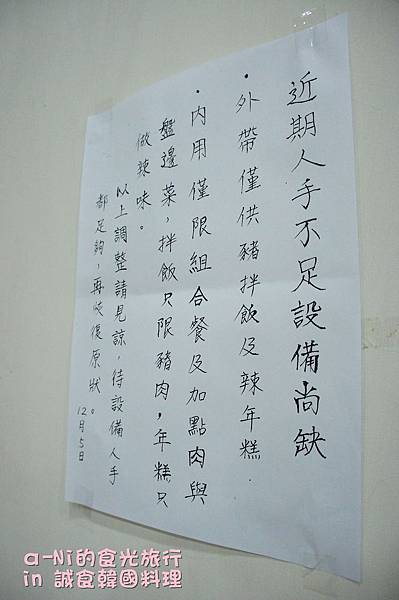 近期人手不足設備尚缺
・外帶僅供豬拌飯及辣年糕.
・內用僅限組合餐及加點肉與
盤邊菜，拌飯只限豬肉，年糕只
做辣味。
以上調整請見諒，待設備人手
都足夠，再恢復原狀。
12月5日
a-Ni的食光旅行
in 誠食韓國料理